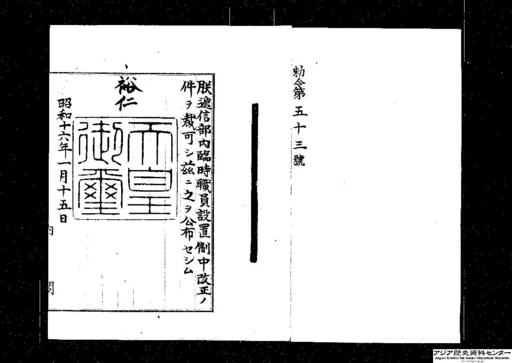 勅令第五十三號
朕遞信部内臨時職員設置制中改正ノ
件ヲ裁可シ茲ニ之ヲ公布セシム
裕仁
天皇
御璽
昭和十六年一月十五日
内
閣
アジア歴史資料センター
Japan Center for Asian Historical Records